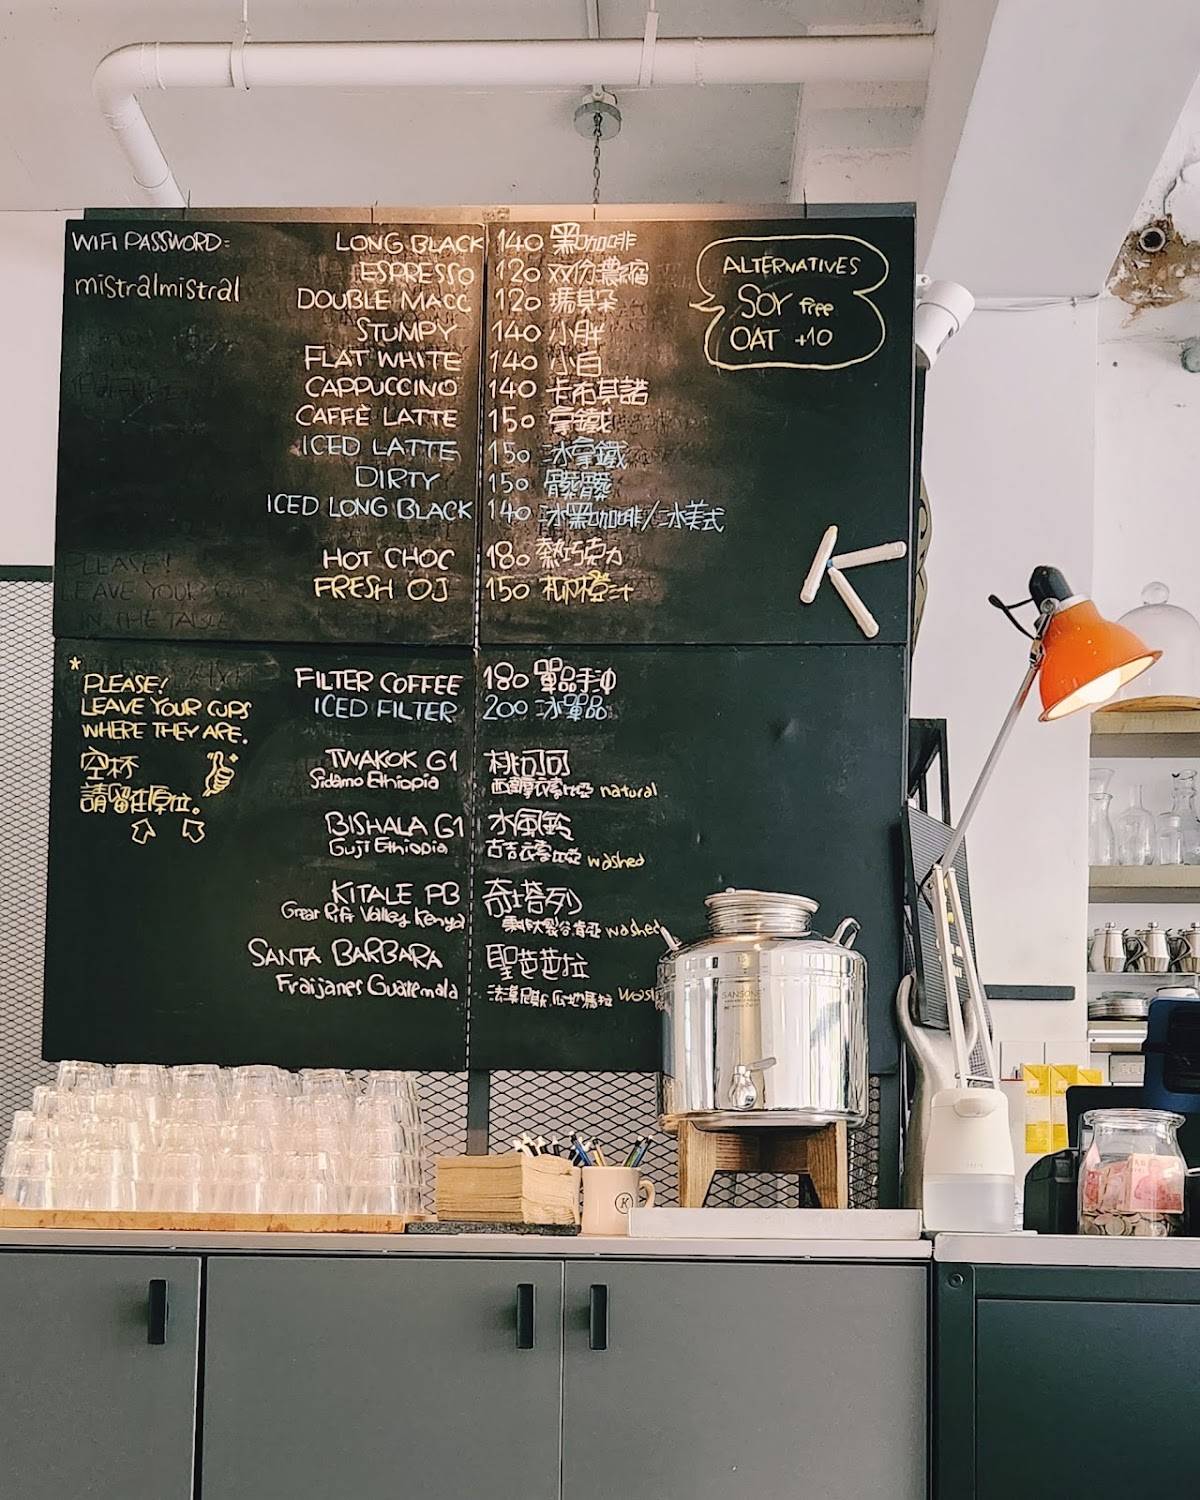 WIFI PASSWORD:
mistralmistral
LONG BLACK 140 黑咖啡
ESPRESSO 120 双份濃縮
DOUBLE MACC 120 瑪其朵
STUMPY 140 小胖
FLAT WHITE 140 小白
CAPPUCCINO 140 卡布其諾
CAFFÈ LATTE 150 拿鐵
ICED LATTE 150 冰拿鐵
DIRTY 150 髒髒
ICED LONG BLACK 140 冰黑咖啡/冰美式
HOT CHOC 180 熱巧克力
FRESH OJ 150 柳橙汁
ALTERNATIVES
SOY free
OAT +10
K
PLEASE!
LEAVE YOUR CUPS
IN THE TABLE
* PLEASE!
LEAVE YOUR CUPS
WHERE THEY ARE.
空杯
請留在原位。
FILTER COFFEE 180 單品手沖
ICED FILTER 200 冰單品
TWAKOK G1 桃可可
Sidamo Ethiopia 西達摩衣索比亞 natural
BISHALA G1 水風鈴
Guji Ethiopia 古吉衣索比亞 washed
KITALE PB 奇塔列
Great Rift Valley Kenya 東非大裂谷肯亞 washed
SANTA BARBARA 聖芭芭拉
Fraijanes Guatemala 瓜地馬拉
SANSONE
K